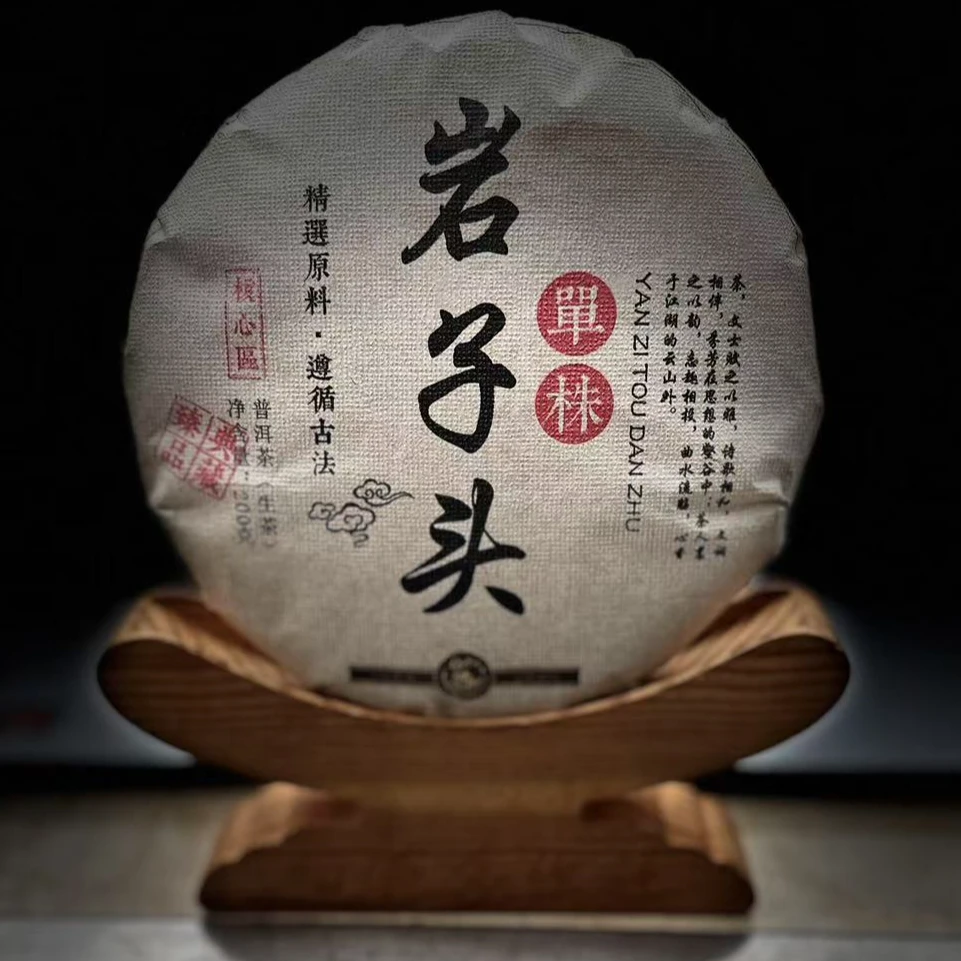 茶，文士赋之以雅，诗歌相和，文词
相伴，香芳在思想的壑谷中；茶人富
之以韵，意趣相投，曲水流觞，心寄
于江湖的云山外。
YAN ZI TOU DAN ZHU
單株
岩子头
精選原料·遵循古法
普洱茶（生茶）
净含量：
核心區
典藏
臻品